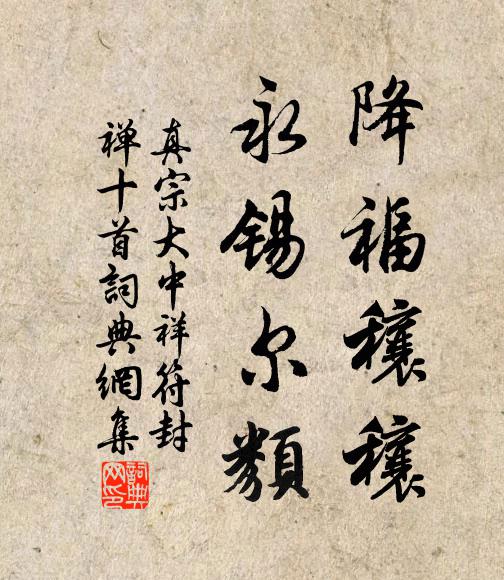 降福穰穰
永锡尔類
真宗大中祥符封
禅十首詞典網集
詞典
网印